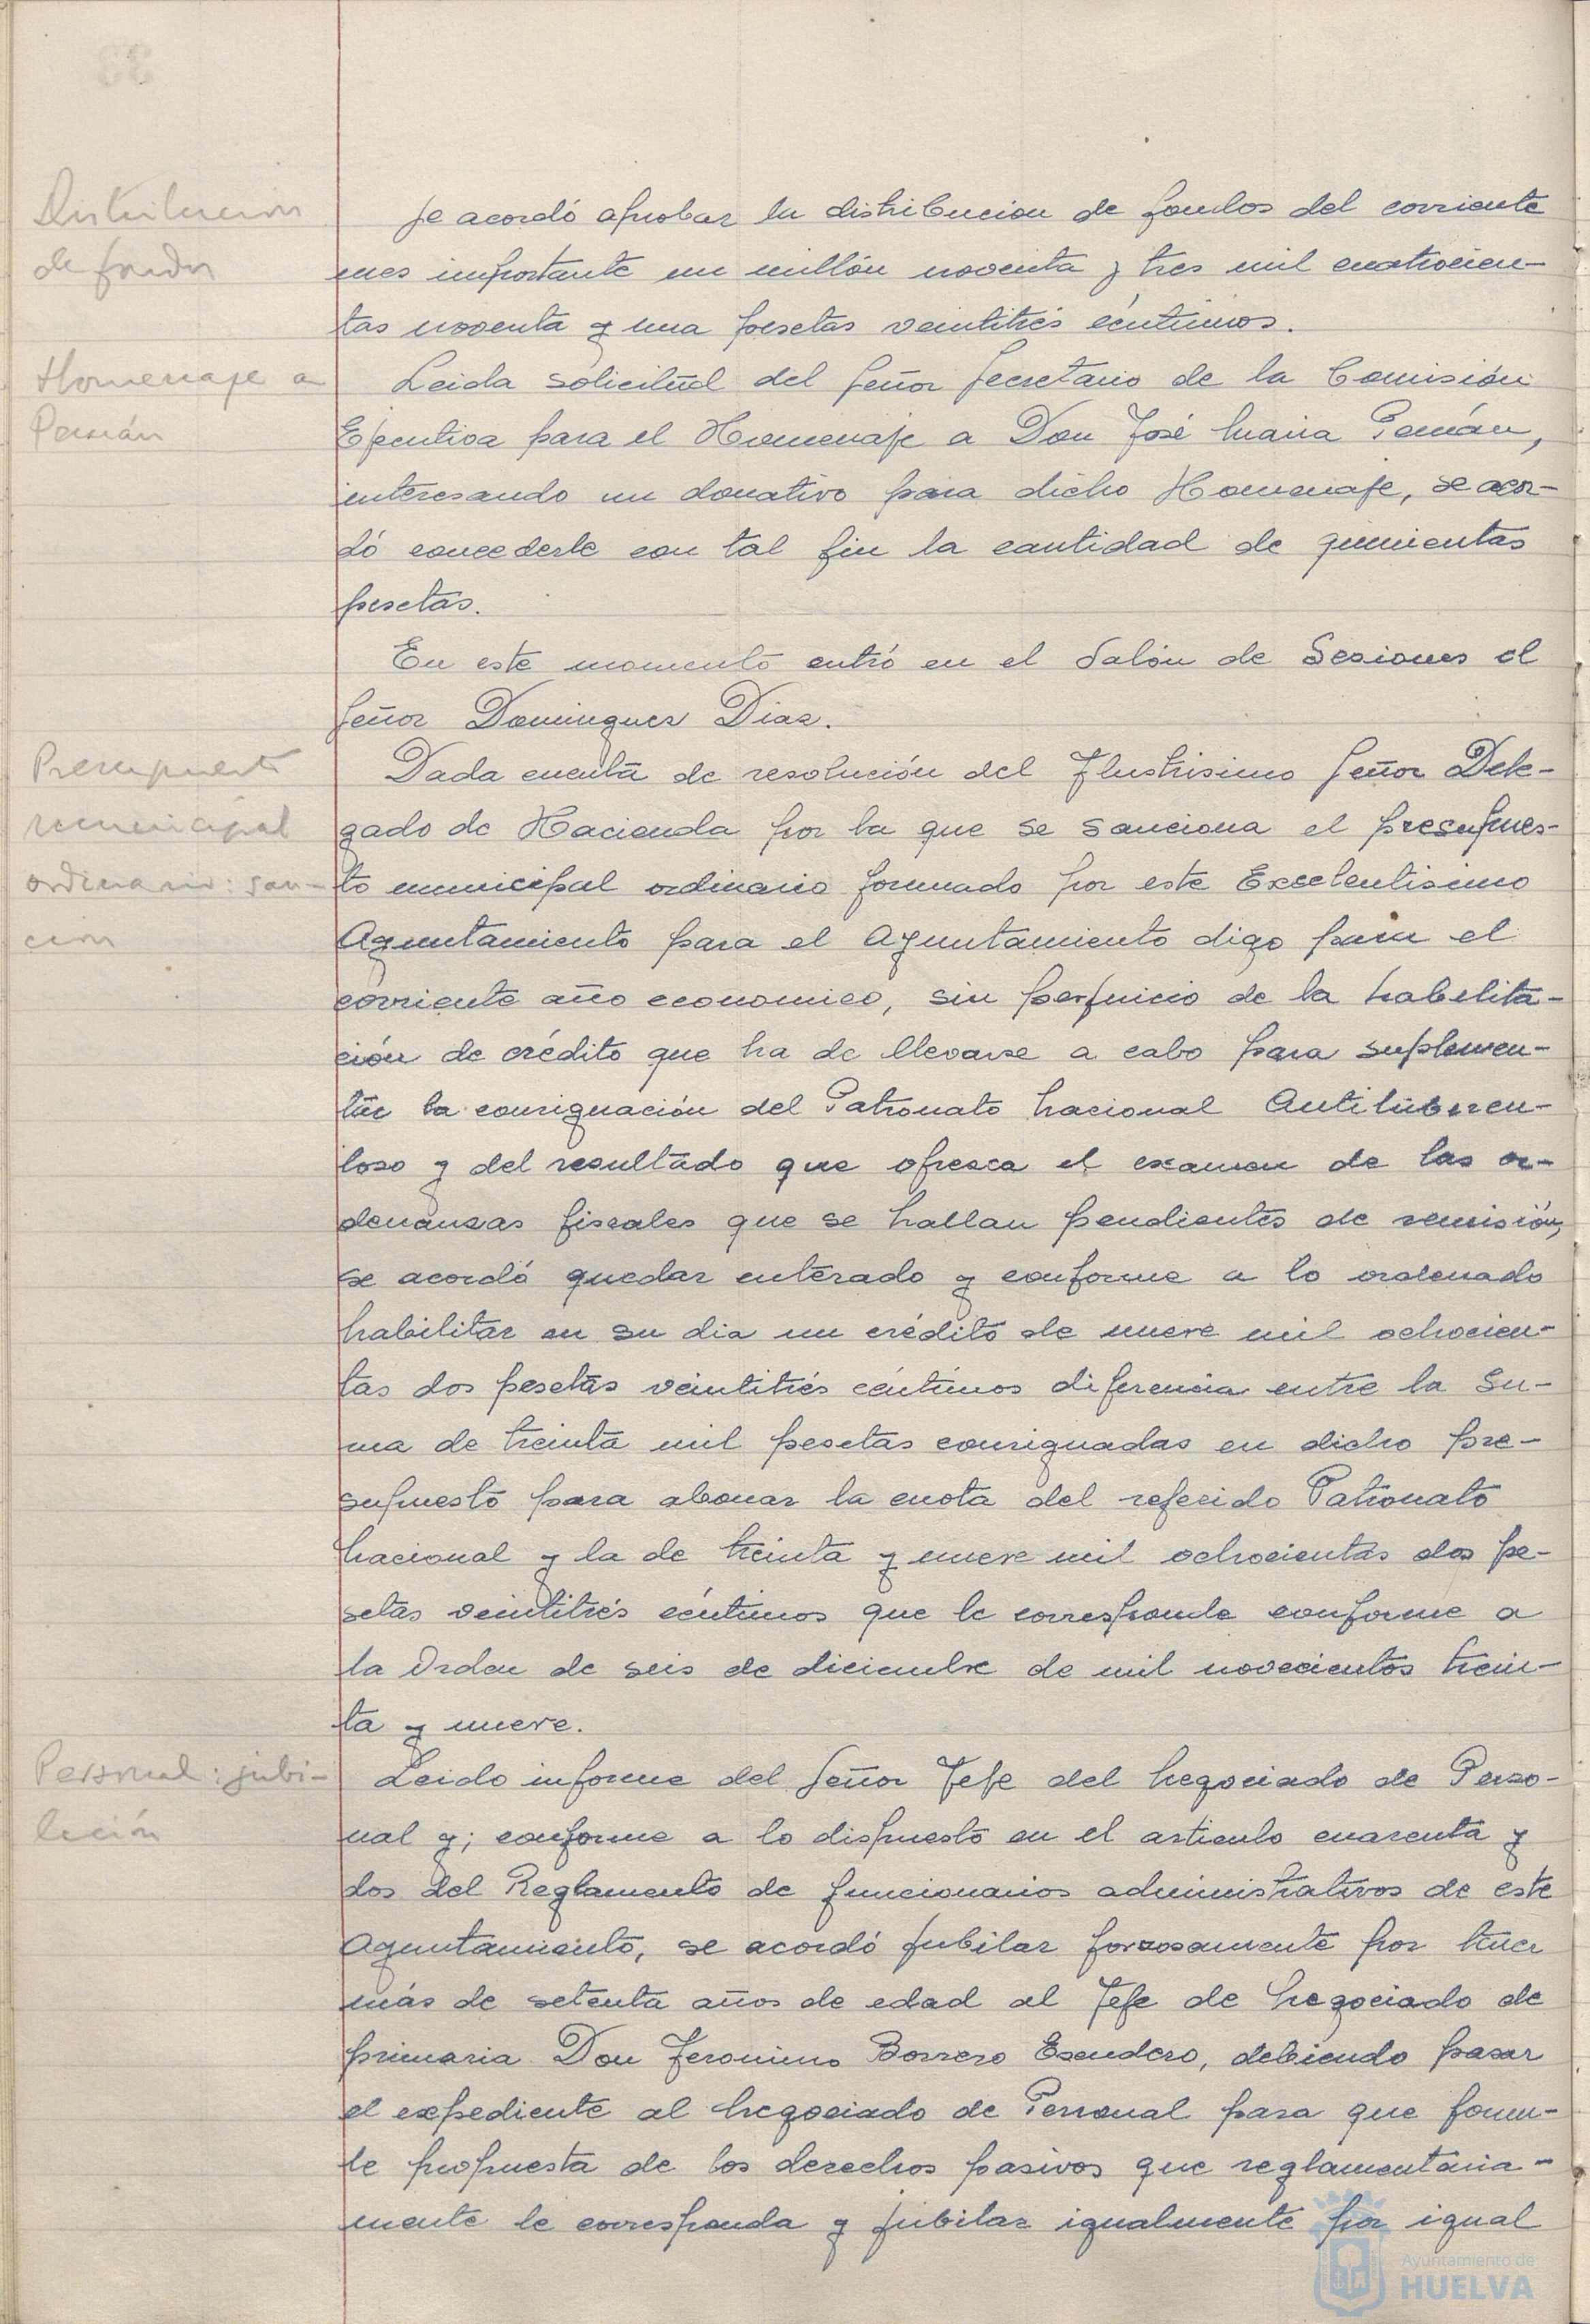 Distribucion
de fondos
Se acordó aprobar la distribucion de fondos del corriente
mes importante un millón noventa y tres mil cuatrocien-
tas noventa y una pesetas veintitrés céntimos.
Homenaje a
Pemán
Leida solicitud del Señor Secretario de la Comisión
Ejecutiva para el Homenaje a Don José Maria Pemán,
interesando un donativo para dicho Homenaje, se acor-
dó concederle con tal fin la cantidad de quinientas
pesetas.
En este momento entró en el Salón de Sesiones el
Señor Dominguez Diaz.
Presupuesto
municipal
ordinario: san-
ción
Dada cuenta de resolución del Ilustrisimo Señor Dele-
gado de Hacienda por la que se sanciona el presupues-
to municipal ordinario formado por este Excelentisimo
Ayuntamiento para el Ayuntamiento digo para el
corriente año economico, sin perjuicio de la habilita-
ción de crédito que ha de llevarse a cabo para suplemen-
tar la consignación del Patronato Nacional Antitubercu-
loso y del resultado que ofresca el examen de las or-
denanzas fiscales que se hallan pendientes de remisión,
se acordó quedar enterado y conforme a lo ordenado
habilitar en su dia un crédito de nueve mil ochocien-
tas dos pesetas veintitrés céntimos diferencia entre la su-
ma de treinta mil pesetas consignadas en dicho pre-
supuesto para abonar la cuota del referido Patronato
Nacional y la de treinta y nueve mil ochocientas dos pe-
setas veintitrés céntimos que le corresponde conforme a
la Orden de seis de diciembre de mil novecientos trein-
ta y nueve.
Personal: jubi-
lación
Leido informe del Señor Jefe del Negociado de Perso-
nal y; conforme a lo dispuesto en el articulo cuarenta y
dos del Reglamento de funcionarios administrativos de este
Ayuntamiento, se acordó jubilar forzosamente por tener
más de setenta años de edad al Jefe de Negociado de
primaria Don Jeronimo Borrero Escudero, debiendo pasar
el expediente al Negociado de Personal para que formu-
le propuesta de los derechos pasivos que reglamentaria-
mente le corresponda y jubilar igualmente por igual
Ayuntamiento de
HUELVA